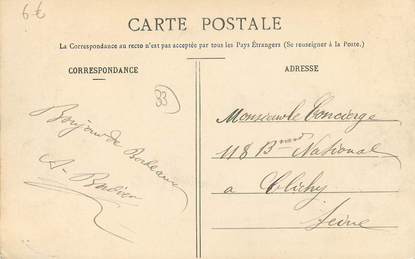 6€
CARTE POSTALE
La Correspondance au recto n'est pas acceptée par tous les Pays Étrangers (Se renseigner à la Poste.)
CORRESPONDANCE
ADRESSE
33
Bonjour de
Bordeaux
A-
Monsieur le Concierge
118 Bvard National
a Clichy
Seine